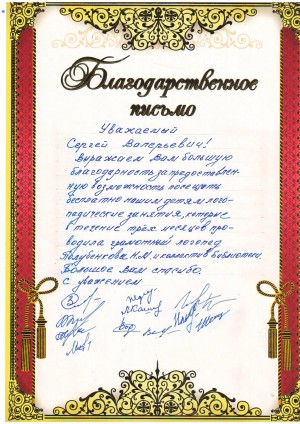 Благодарственное
письмо
Уважаемый
Сергей Валерьевич!
Выражаем Вам большую
благодарность за предоставлен-
ную возможность посещать
бесплатно нашим детям лого-
педические занятия, которые
в течение трёх месяцев про-
водила грамотный логопед
Голубенкова Н.М. и коллектив библиотеки.
Большое Вам спасибо.
С уважением